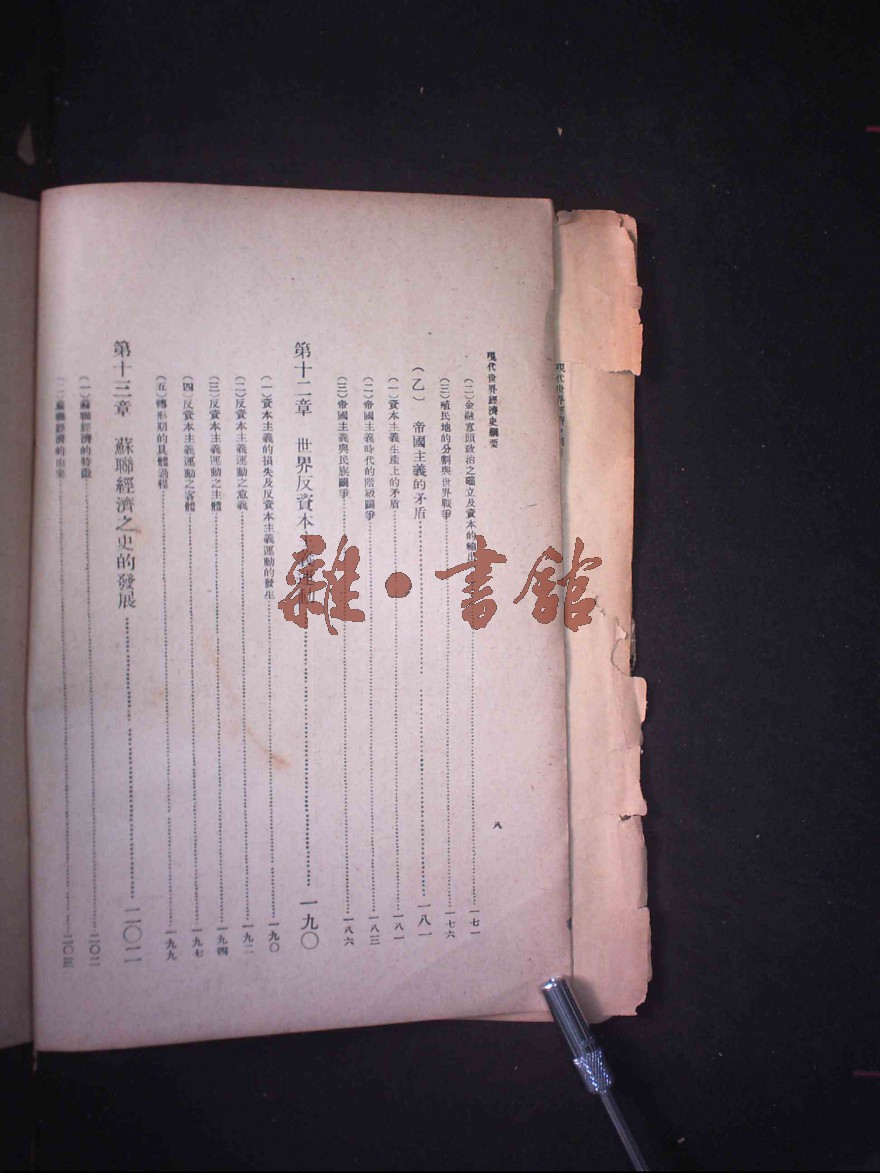 現代世界經濟史綱要
八
(二)金融寡頭政治之確立及資本的輸出……一七一
(三)殖民地的分割與世界戰爭……一七六
(乙) 帝國主義的矛盾……一八一
(一)資本主義生產上的矛盾……一八一
(二)帝國主義時代的階級鬬爭……一八三
(三)帝國主義與民族鬬爭……一八六
第十二章 世界反資本主義運動……一九〇
(一)資本主義的損失及反資本主義運動的發生……一九〇
(二)反資本主義運動之意義……一九二
(三)反資本主義運動之主體……一九四
(四)反資本主義運動之客體……一九七
(五)轉形期的具體過程……一九九
第十三章 蘇聯經濟之史的發展……二〇二
(一)蘇聯經濟的特徵……二〇二
(二)蘇聯經濟的由來……二〇三
雜·書館